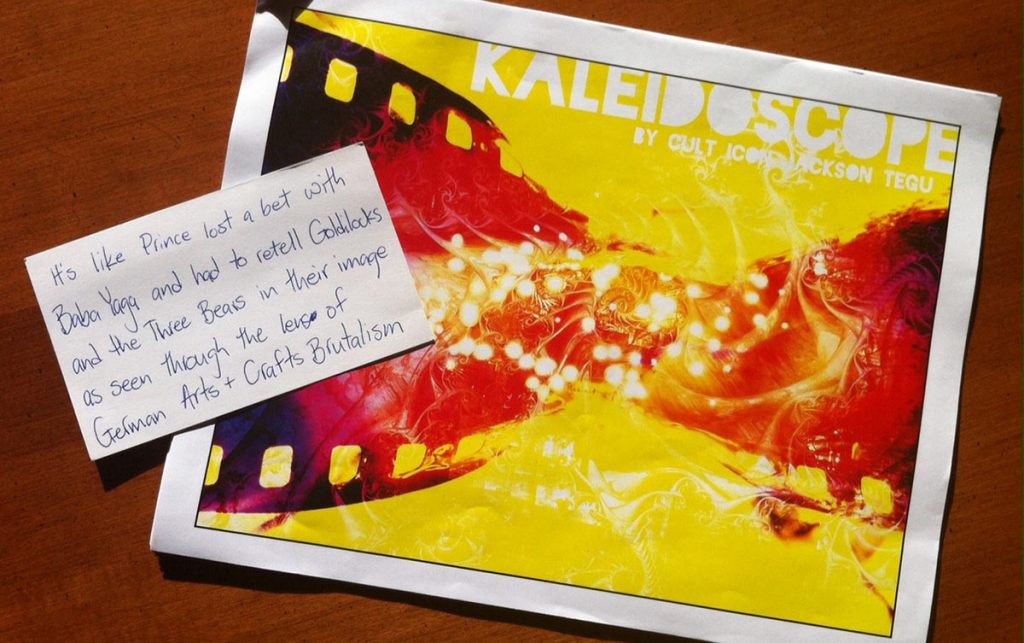 KALEIDOSCOPE
BY CULT ICON JACKSON TEGU
It's like Prince lost a bet with
Baba Yaga and had to retell Goldilocks
and the Three Bears in their image
as seen through the lens of
German Arts + Crafts Brutalism